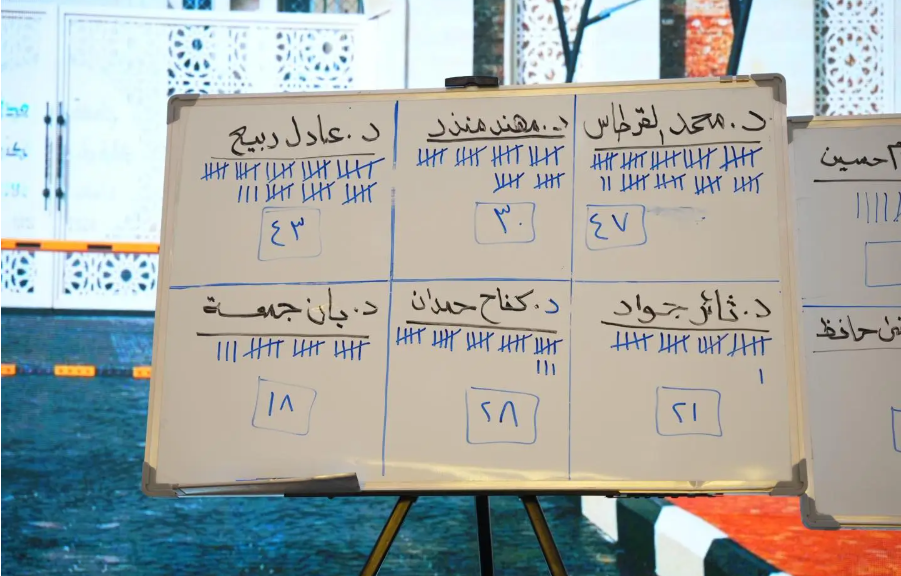 د. محمد القرطاس
٤٧
د. مهند منذر
٣٠
د. عادل ربيع
٤٣
د. ثائر جواد
٢١
د. كفاح حمدان
٢٨
د. بان جمعة
١٨
حسين
حافظ